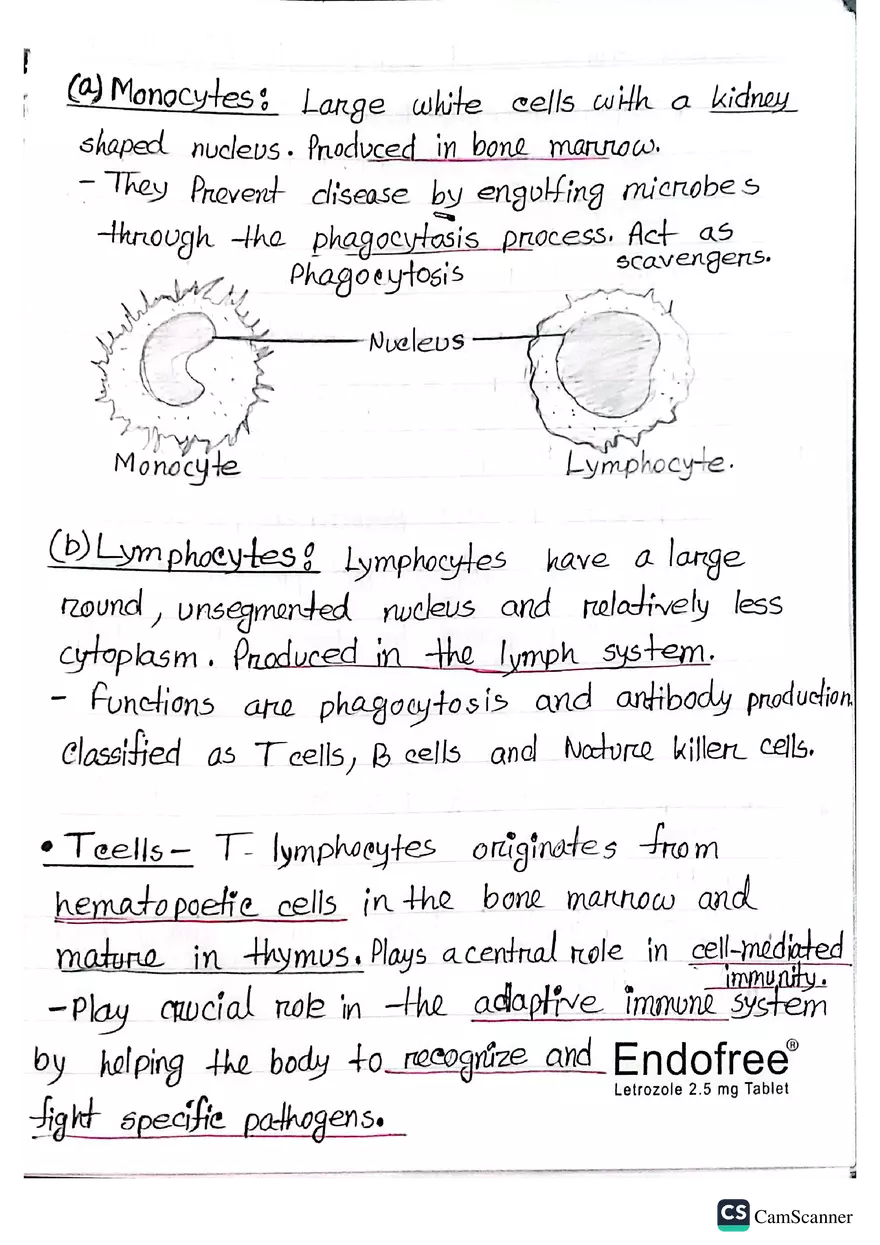 (a) Monocytes: Large white cells with a kidney
shaped nucleus. Produced in bone marrow.
- They Prevent disease by engulfing microbes
through the phagocytosis process. Act as
scavengers.
Phagocytosis
Nucleus
Monocyte
Lymphocyte.
(b) Lymphocytes: Lymphocytes have a large
round, unsegmented nucleus and relatively less
cytoplasm. Produced in the lymph system.
- Functions are phagocytosis and antibody production
Classified as T cells, B cells and Nature killer cells.
• Tcells - T- lymphocytes originates from
hematopoetic cells in the bone marrow and
mature in thymus. Plays a central role in cell-mediated
immunity.
- Play crucial role in the adaptive immune system
by helping the body to recognize and
fight specific pathogens.
Endofree®
Letrozole 2.5 mg Tablet
CS CamScanner